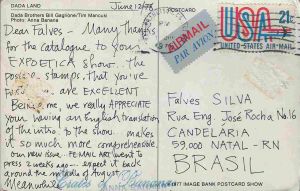 DADA LAND
June 12/78
POSTCARD
Dada Brothers Bill Gaglione/Tim Mancusi
Photo: Anna Banana
Dear Falves - Many Thanks
for the catalogue to your
EXPOETICA show... the
postal stamps, that you've
are EXCELLENT
we really APPRECIATE
your having an English translation
of the intro. to the show. makes
it so much more comprehensible
our new issue, FE MAIL ART went to
press 2 weeks ago - expect it back
around the middle of August
Meanwhile
AIR MAIL
PAR AVION
USA
21c
UNITED STATES AIR MAIL
FALVES SILVA
Rua Eng. José Rocha, No 16
CANDELÁRIA
59,000 NATAL - RN
BRASIL
1977 IMAGE BANK POSTCARD SHOW